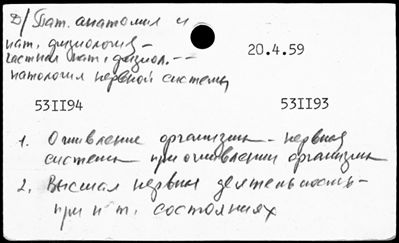 Д/ Пат. анатомия и
пат. физиология –
частная пат. физиол. – –
патология нервной системы
20.4.59
53II94 53II93
1. Оживление организма – нервная
система при оживлении организма
2. Высшая нервная деятельность –
при п т. состояниях